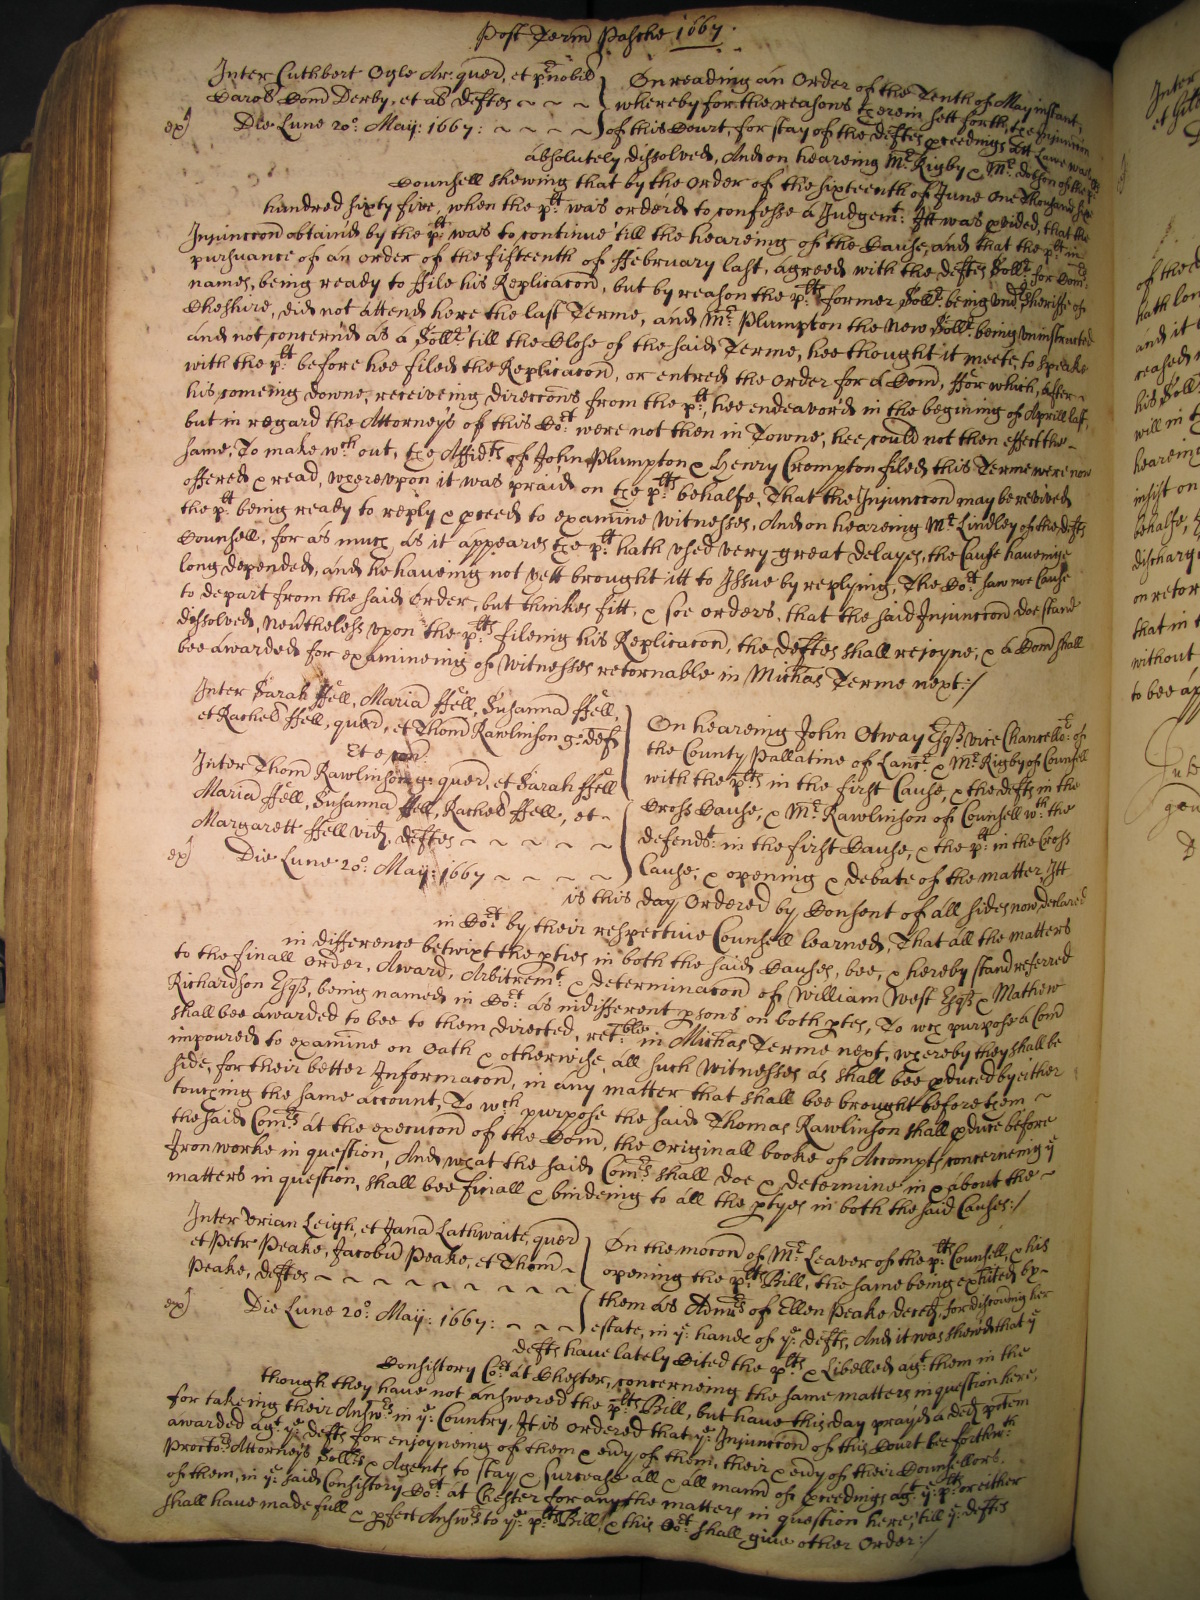 Post Term Pasche 1667.
Inter Cuthbert Ogle Ar. quer, et prnobil
Carol Com Derby, et al deftes
ex) Die Lune 20o: Maij: 1667:
On reading an Order of the Tenth of May instant,
whereby for the reasons therein sett forth, the Injuncon
of this Court, for stay of the deftes proceedings att Lawe was
absolutely dissolved, And on heareing Mr. Rigby & Mr. dobson of the plts
Counsell shewing that by the Order of the sixteenth of June One Thousand six
hundred sixty five, when the plt was orderd to confesse a Judgemt: Itt was pvided, that the
Injuncon obtaind by the plt was to continue till the heareing of the Cause, and that the plt in
pursuance of an order of the fifteenth of ffebruary last, agreed with the deftes Sollr for Comrs
names, being ready to ffile his Replicacon, but by reason the plts former Sollr being undr Sheriffe of
Cheshire, did not attend here the last Terme, and Mr. Plumpton the New Sollr being uninstructed
and not concernd as a Sollr till the Close of the said Terme, hee thought it meete, to speake
with the plt before hee filed the Replicacon, or entred the Order for a Com, ffor which, after
his comeing downe, receiveing direccons from the plt, hee endeavord in the begining of Aprill last,
but in regard the Attorneys of this Cot were not then in Towne, hee could not then effect the
same, To make wch out, the Affidts of John Plumpton & Henry Crompton filed this Terme were now
offered & read, whereupon it was praid on the plts behalfe, That the Injunccon may be revived
the plt being ready to reply & pceed to examine witnesses, And on heareing Mr Lindley of the defts
Counsell, for as much as it appeares the plt hath used very great delayes, the Cause haveinge
long depended, and he haveing not yett brought itt to Issue by replying, The Cot saw noe Cause
to depart from the said Order, but thinkes fitt, & soe orders, that the said Injunccon doe stand
dissolved, Neutheless upon the plts fileing his Replicacon, the deftes shall rejoyne, & a Com shall
bee awarded for examineing of Witnesses retornable in Michas Terme next:/
Inter Sarah ffell, Maria ffell, Susanna ffell,
et Rachel ffell, quer, et Thom Rawlinson g: deft
Et e con
Inter Thom Rawlinson g: quer, et Sarah ffell
Maria ffell, Susanna ffell, Rachel ffell, et
Margarett ffell vid, deftes
ex) Die Lune 20o: Maij: 1667
On heareing John Otway Esqr vice Chancellor of
the County Pallatine of Lancr & Mr Rigby of Counsell
with the plts in the first Cause, & the defts in the
Cross Cause, & Mr. Rawlinson of Counsell wth the
defendt: in the first Cause, & the plt in the Cross
Cause, & opening & debate of the matter Itt
is this day Ordered by Consent of all sides now declared
in Cot by their respective Counsell learned, That all the matters
in difference betwixt the pties in both the said Causes, bee, & hereby stand referred
to the finall Order, Award, Arbitremt: & determinacon of William West Esqr & Mathew
Richardson Esqr, being named in Cot as indifferent psons on both ptes, To wch purpose a Com
shall bee awarded to bee to them directed, retble in Michas Terme next, whereby they shall be
impoured to examine on Oath & otherwise, all such Witnesses as shall bee pduced by either
side, for their better Informacon, in any matter that shall bee brought before them
touching the same account, To wch purpose the said Thomas Rawlinson shall pduce before
the said Comrs at the execucon of the Com, the Originall booke of Accompts concerneing ye
Iron worke in question, And what the said Comrs shall doe & determine in & about the
matters in question, shall bee finall & bindeing to all the ptyes in both the said Causes:/
Inter Urian Leigh, et Jana Lathwaite, quer
et Petr Peake, Jacobu Peake, et Thom
Peake, deftes
ex) Die Lune 20o: Maij: 1667:
On the mocon of Mr. Leaver of the plts Counsell, & his
opening the plts Bill, the same being exhited by
them as Admrs of Ellen Peake deced, for discoving her
estate, in ye: hande of ye: defts, And it was shewd that ye
defts have lately Cited the plts & Libelled agt: them in the
Consistory Cot at Chester, concerneing the same matters in question here,
though they have not answered the plts Bill, but have this day prayd a ded ptem
for takeing their Answrs in ye: Country, It is ordered that ye: Injunccon of this Court bee forthwth:
awarded agt ye: defts for enjoyneing of them & evy of them, their & evy of their Counsellors.
Proctors Attorneys Sollrs & Agents to stay & surcease all & all mann of pceedings agt ye: plts or either
of them, in ye: said Consistory Cot at Chester for any the matters in question here, till ye: deftes
shall have made full & pfect Answrs to ye: plts Bill, & this Cot shall give other Order:/